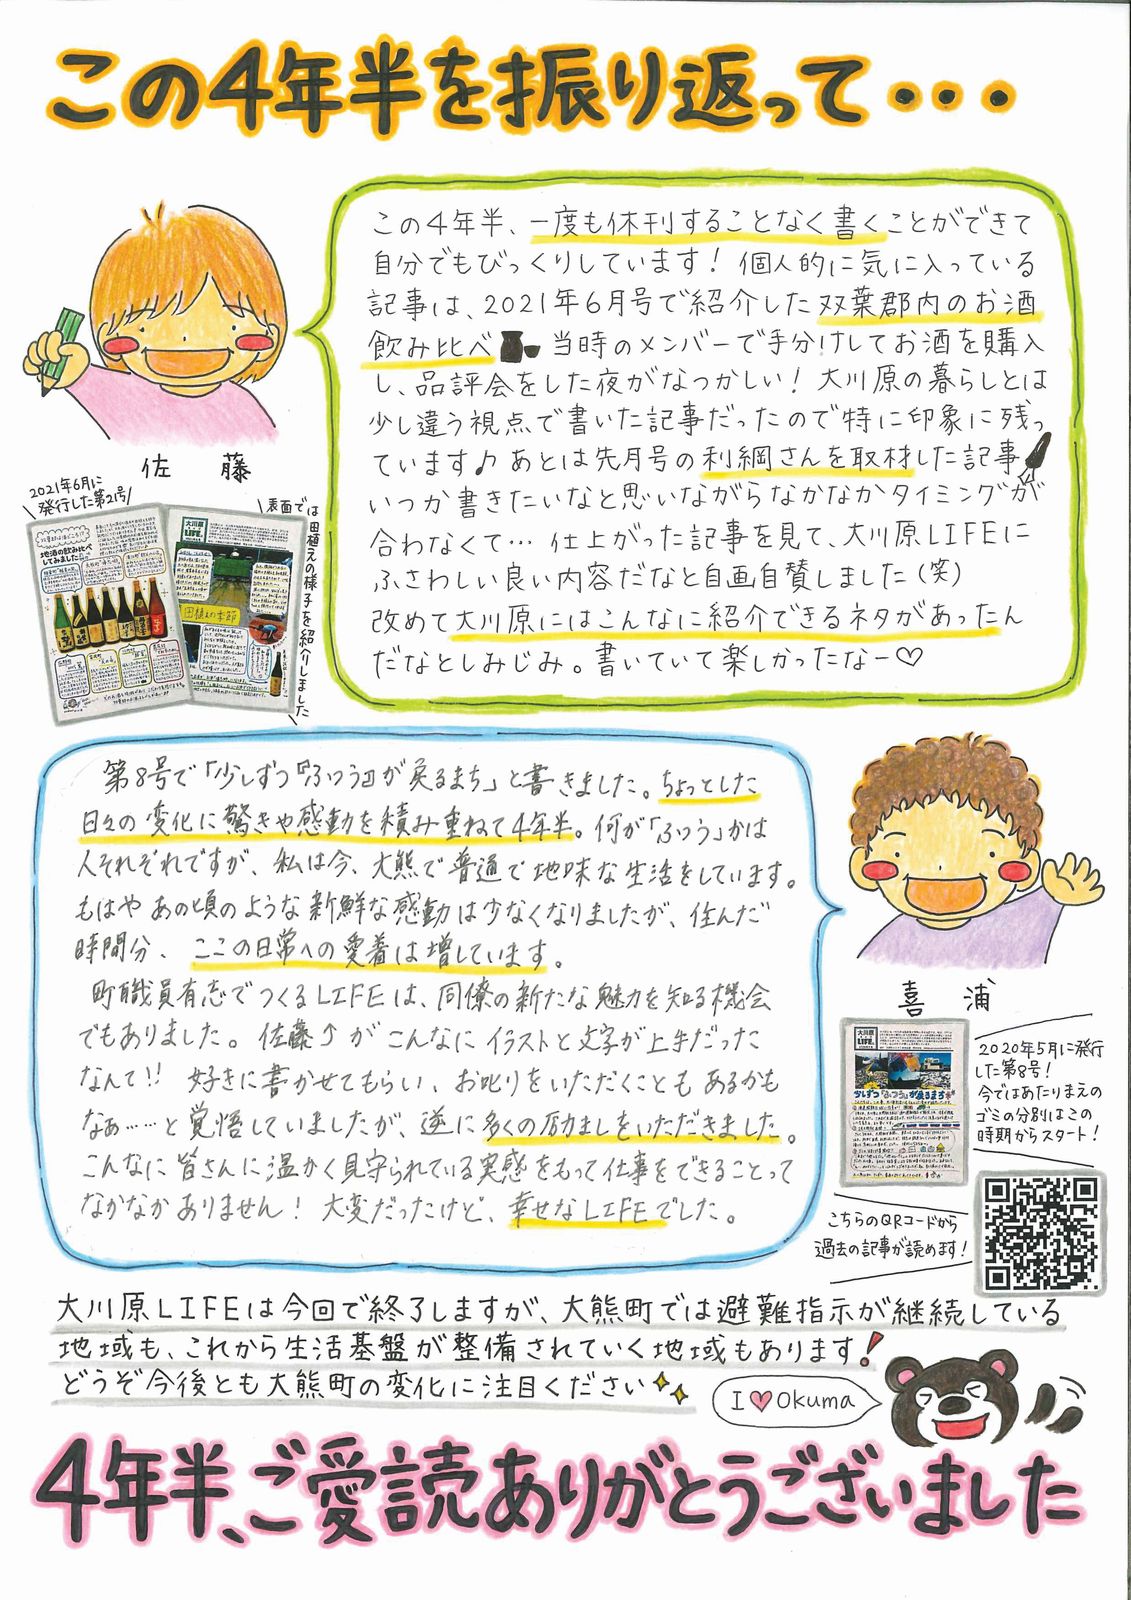 この4年半を振り返って・・・
この4年半、一度も休刊することなく書くことができて
自分でもびっくりしています！個人的に気に入っている
記事は、2021年6月号で紹介した双葉郡内のお酒
飲み比べ 当時のメンバーで手分けしてお酒を購入
し、品評会をした夜がなつかしい！大川原の暮らしとは
少し違う視点で書いた記事だったので特に印象に残っ
ています♪あとは先月号の利綱さんを取材した記事
いつか書きたいなと思いながらなかなかタイミングが
合わなくて…仕上がった記事を見て、大川原LIFEに
ふさわしい良い内容だなと自画自賛しました(笑)
改めて大川原にはこんなに紹介できるネタがあったん
だなとしみじみ。書いていて楽しかったなー♡
佐藤
2021年6月に
発行した第21号
表面では田植えの様子を紹介しました
地酒の飲み比べ
してみました
大川原
LIFE
田植えの季節
第8号で「少しずつ『ふつう』が戻るまち」と書きました。ちょっとした
日々の変化に驚きや感動を積み重ねて4年半。何が「ふつう」かは
人それぞれですが、私は今、大熊で普通で地味な生活をしています。
もはやあの頃のような新鮮な感動は少なくなりましたが、住んだ
時間分、ここの日常への愛着は増しています。
町職員有志でつくるLIFEは、同僚の新たな魅力を知る機会
でもありました。佐藤↑がこんなにイラストと文字が上手だった
なんて!!好きに書かせてもらい、お叱りをいただくこともあるかも
なぁ……と覚悟していましたが、逆に多くの励ましをいただきました。
こんなに皆さんに温かく見守られている実感をもって仕事をできることって
なかなかありません！大変だったけど、幸せなLIFEでした。
喜浦
大川原
LIFE
少しずつ「ふつう」が戻るまち
2020年5月に発行
した第8号！
今ではあたりまえの
ゴミの分別はこの
時期からスタート！
こちらのQRコードから
過去の記事が読めます！
大川原LIFEは今回で終了しますが、大熊町では避難指示が継続している
地域も、これから生活基盤が整備されていく地域もあります！
どうぞ今後とも大熊町の変化に注目ください
I♥Okuma
4年半、ご愛読ありがとうございました